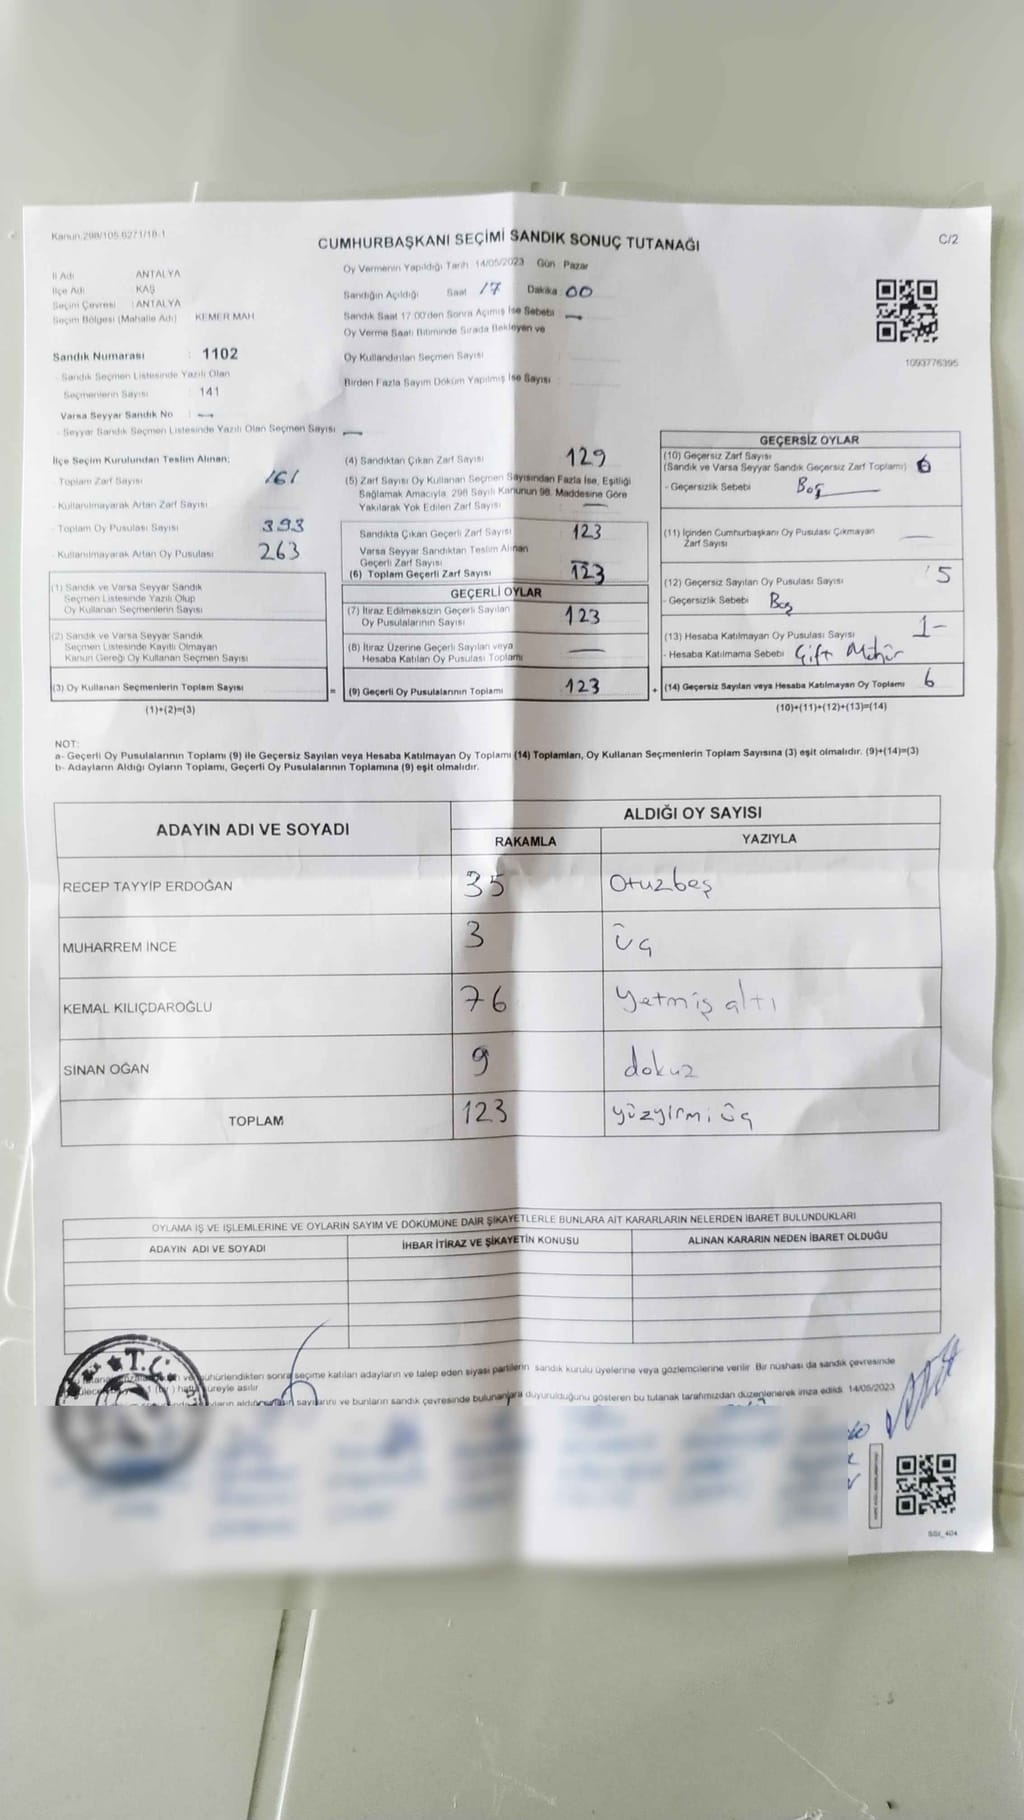 Kanun:298/105-6271/18-1
C/2
CUMHURBAŞKANI SEÇİMİ SANDIK SONUÇ TUTANAĞI
İl Adı : ANTALYA
İlçe Adı : KAŞ
Seçim Çevresi : ANTALYA
Seçim Bölgesi (Mahalle Adı) : KEMER MAH
Oy Vermenin Yapıldığı Tarih 14/05/2023 Gün Pazar
Sandığın Açıldığı Saat 17 Dakika 00
Sandık Saat 17:00'den Sonra Açılmış İse Sebebi
Oy Verme Saati Bitiminde Sırada Bekleyen ve
Oy Kullandırılan Seçmen Sayısı
Birden Fazla Sayım Döküm Yapılmış İse Sayısı
1093776395
Sandık Numarası : 1102
- Sandık Seçmen Listesinde Yazılı Olan
Seçmenlerin Sayısı : 141
Varsa Seyyar Sandık No : —
- Seyyar Sandık Seçmen Listesinde Yazılı Olan Seçmen Sayısı —
İlçe Seçim Kurulundan Teslim Alınan;
- Toplam Zarf Sayısı 161
- Kullanılmayarak Artan Zarf Sayısı
- Toplam Oy Pusulası Sayısı 393
- Kullanılmayarak Artan Oy Pusulası 263
(1) Sandık ve Varsa Seyyar Sandık
Seçmen Listesinde Yazılı Olup
Oy Kullanan Seçmenlerin Sayısı
(2) Sandık ve Varsa Seyyar Sandık
Seçmen Listesinde Kayıtlı Olmayan
Kanun Gereği Oy Kullanan Seçmen Sayısı
(3) Oy Kullanan Seçmenlerin Toplam Sayısı
(1)+(2)=(3)
(4) Sandıktan Çıkan Zarf Sayısı 129
(5) Zarf Sayısı Oy Kullanan Seçmen Sayısından Fazla İse, Eşitliği
Sağlamak Amacıyla, 298 Sayılı Kanunun 98. Maddesine Göre
Yakılarak Yok Edilen Zarf Sayısı —
Sandıkta Çıkan Geçerli Zarf Sayısı 123
Varsa Seyyar Sandıktan Teslim Alınan
Geçerli Zarf Sayısı —
(6) Toplam Geçerli Zarf Sayısı 123
GEÇERLİ OYLAR
(7) İtiraz Edilmeksizin Geçerli Sayılan
Oy Pusulalarının Sayısı 123
(8) İtiraz Üzerine Geçerli Sayılan veya
Hesaba Katılan Oy Pusulası Toplamı —
= (9) Geçerli Oy Pusulalarının Toplamı 123
GEÇERSİZ OYLAR
(10) Geçersiz Zarf Sayısı
(Sandık ve Varsa Seyyar Sandık Geçersiz Zarf Toplamı)
- Geçersizlik Sebebi Boş
(11) İçinden Cumhurbaşkanı Oy Pusulası Çıkmayan
Zarf Sayısı —
(12) Geçersiz Sayılan Oy Pusulası Sayısı 5
- Geçersizlik Sebebi Boş
(13) Hesaba Katılmayan Oy Pusulası Sayısı 1-
- Hesaba Katılmama Sebebi Çift Mühür
+ (14) Geçersiz Sayılan veya Hesaba Katılmayan Oy Toplamı 6
(10)+(11)+(12)+(13)=(14)
NOT:
a- Geçerli Oy Pusulalarının Toplamı (9) ile Geçersiz Sayılan veya Hesaba Katılmayan Oy Toplamı (14) Toplamları, Oy Kullanan Seçmenlerin Toplam Sayısına (3) eşit olmalıdır. (9)+(14)=(3)
b- Adayların Aldığı Oyların Toplamı, Geçerli Oy Pusulalarının Toplamına (9) eşit olmalıdır.
ADAYIN ADI VE SOYADI
ALDIĞI OY SAYISI
RAKAMLA YAZIYLA
RECEP TAYYİP ERDOĞAN 35 Otuzbeş
MUHARREM İNCE 3 üç
KEMAL KILIÇDAROĞLU 76 Yetmiş altı
SİNAN OĞAN 9 dokuz
TOPLAM 123 yüzyirmi üç
OYLAMA İŞ VE İŞLEMLERİNE VE OYLARIN SAYIM VE DÖKÜMÜNE DAİR ŞİKAYETLERLE BUNLARA AİT KARARLARIN NELERDEN İBARET BULUNDUKLARI
ADAYIN ADI VE SOYADI İHBAR İTİRAZ VE ŞİKAYETİN KONUSU ALINAN KARARIN NEDEN İBARET OLDUĞU
T.C.
mühürlendikten sonra seçime katılan adayların ve talep eden siyasi partilerin sandık kurulu üyelerine veya gözlemcilerine verilir. Bir nüshası da sandık çevresinde
süreyle asılır.
sayılarını ve bunların sandık çevresinde bulunanlara duyurulduğunu gösteren bu tutanak tarafımızdan düzenlenerek imza edildi. 14/05/2023
SSI_404